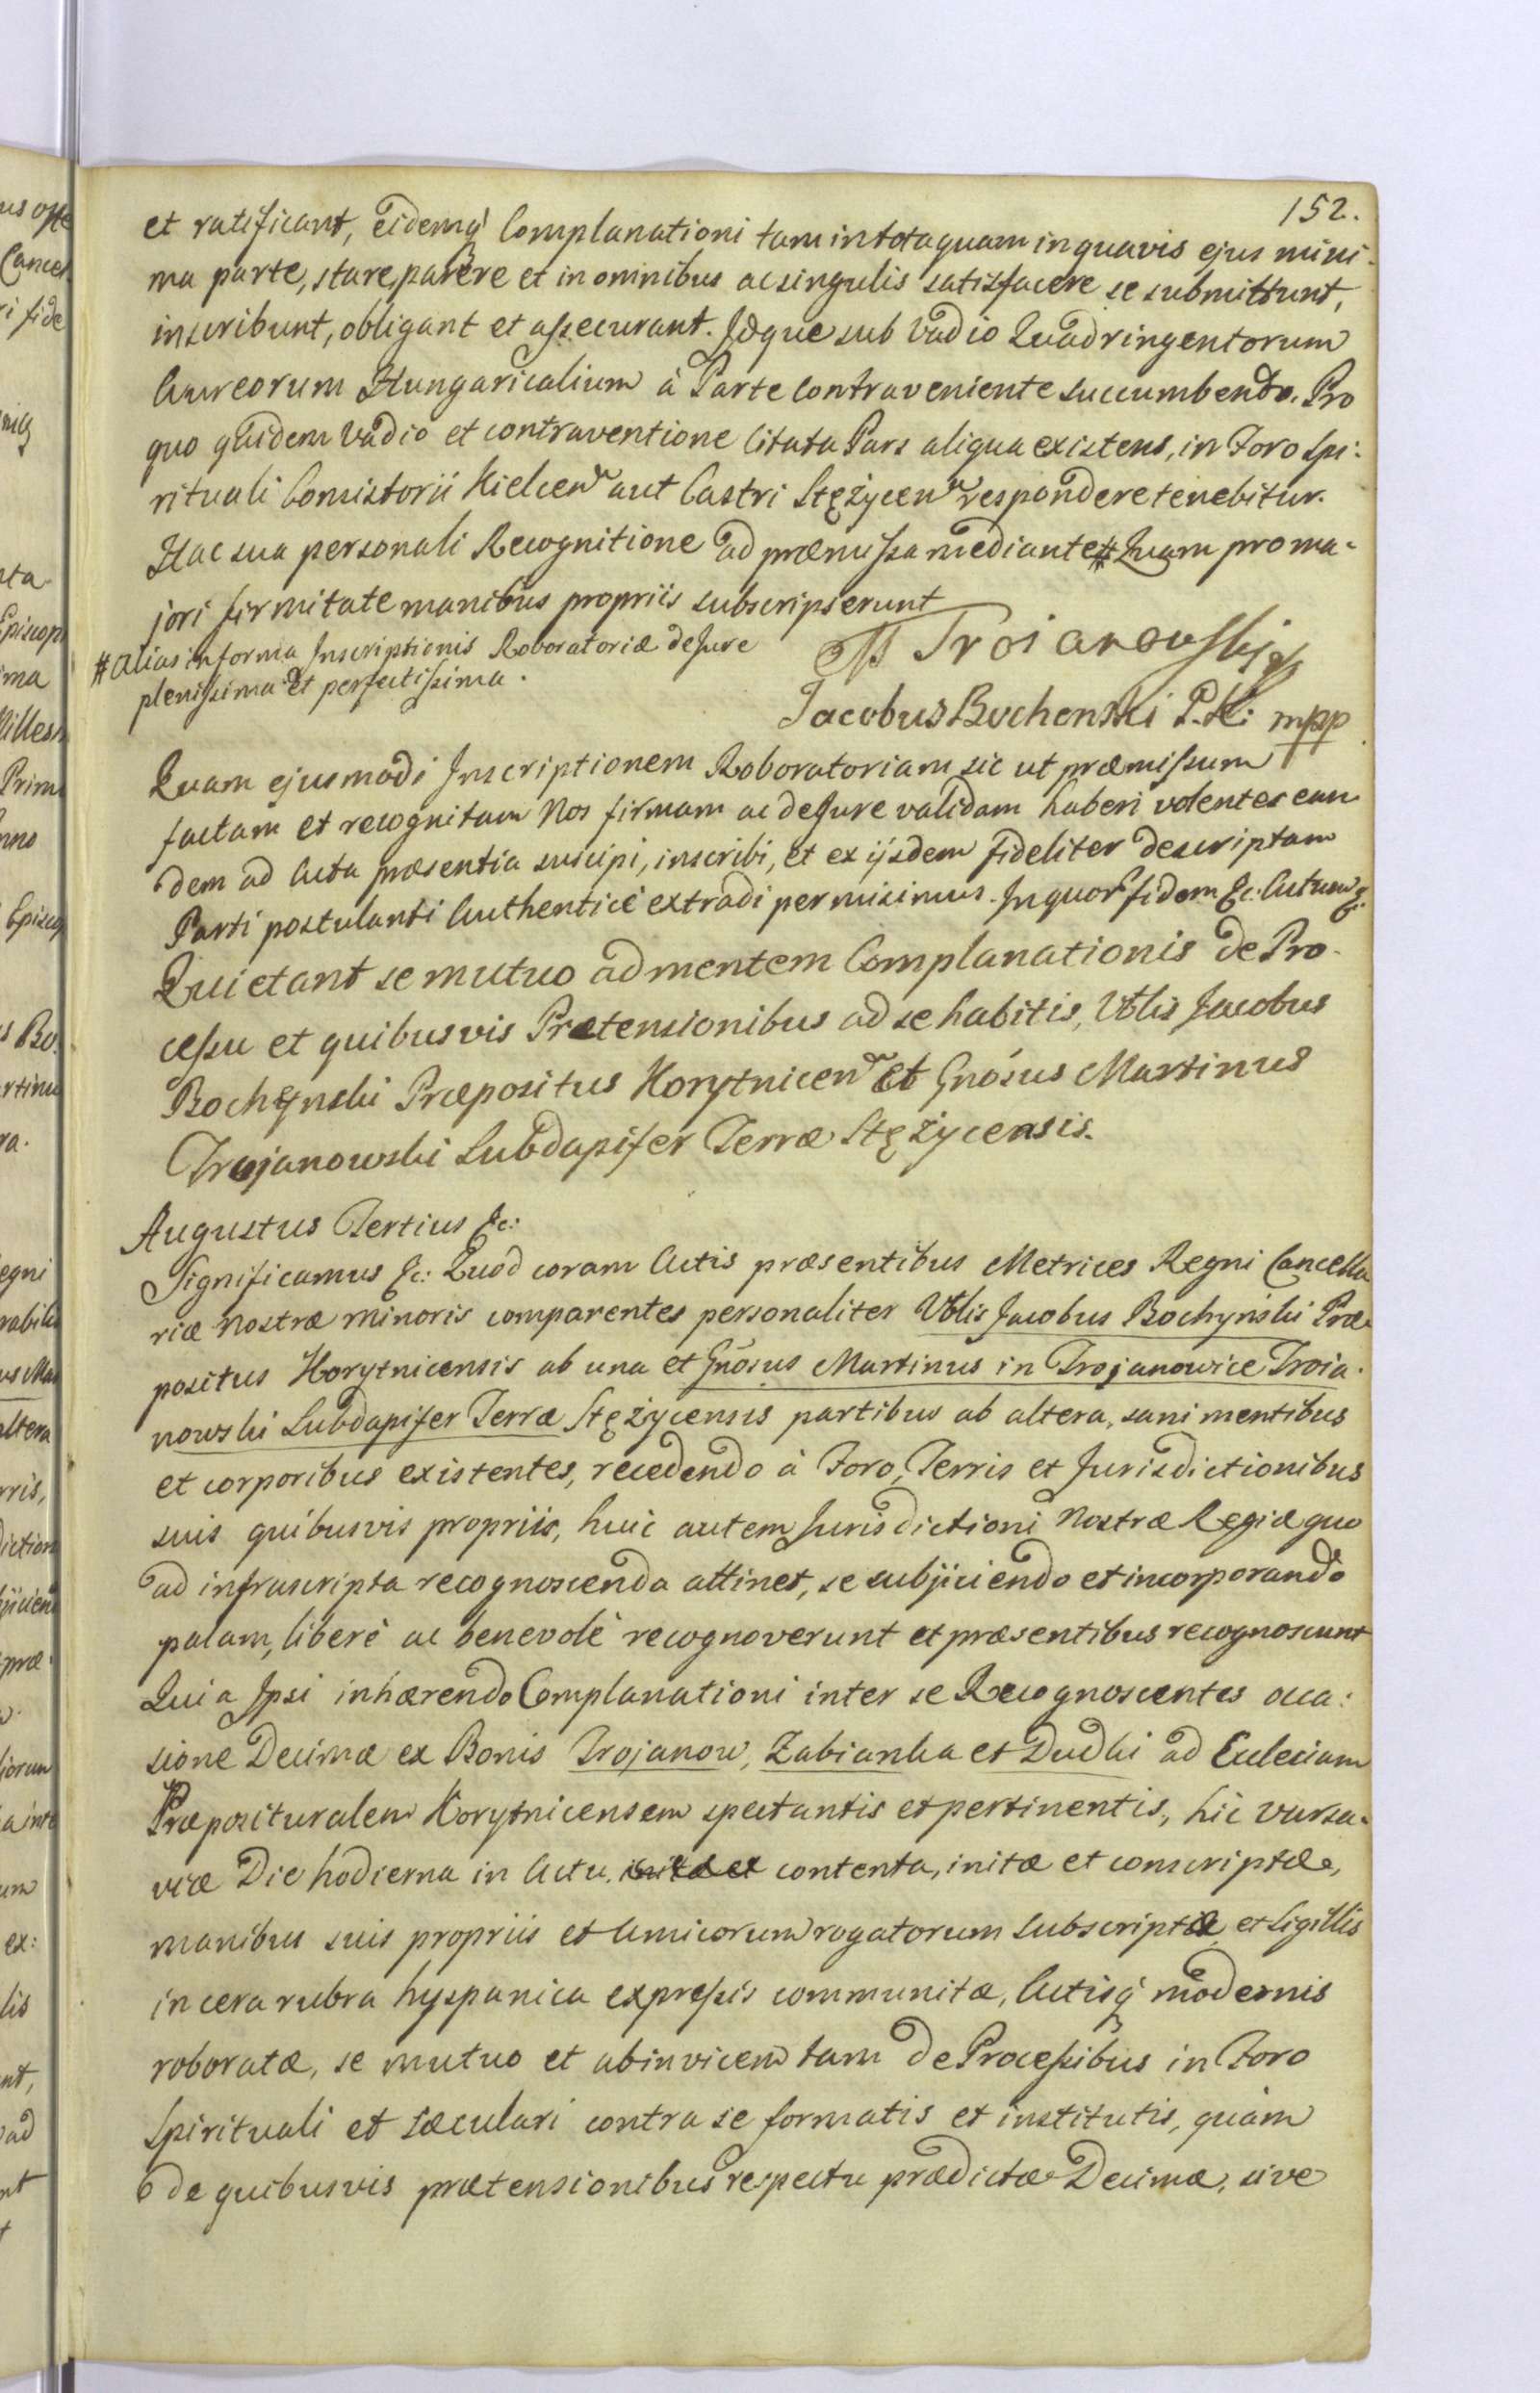 152.
et ratificant, eidemq̃ Complanationi tam in tota quam in quavis ejus mini-
ma parte, stare, parere et in omnibus ac singulis satisfacere se submittunt,
inscribunt, obligant et assecurant. Idque sub Vadio Quadringentorum
Aureorum Hungaricalium à Parte Contraveniente succumbendo. Pro
quo quidem Vadio et contraventione Citata Pars aliqua existens, in Foro Spi:
rituali Consistorii Kielcen̄ aut Castri Stężycen̄ respondere tenebitur.
Hac sua personali Recognitione ad præmissa mediante # Quam pro ma-
jori firmitate manibus propriis subscripserunt
# alias in forma Inscriptionis Roboratoriæ de Jure
plenissima et perfectissima.
M Troianowskj
Jacobus Bochenski P. K: mpp
Quam ejusmodi Inscriptionem Roboratoriam sic ut præmissum
factam et recognitam Nos firmam ac de Jure validam haberi volentes ean
dem ad Acta præsentia suscipi, inscribi, et ex ijsdem fideliter descriptam
Parti postulanti Authenticè extradi permisimus. In quor̃ fidem &c: Actum &c.
Quietant se mutuo ad mentem Complanationis de Pro-
cessu et quibusvis Prætensionibus ad se habitis, Vblis Jacobus
Bochęnski Præpositus Korytnicen̄ et Gnosus Martinus
Trojanowski Subdapifer Terræ Stężycensis.
Augustus Tertius &c:
Significamus &c: Quod coram Actis præsentibus Metrices Regni Cancella
riæ Nostræ minoris comparentes personaliter Vblis Jacobus Bochyński Præ
positus Korytnicensis ab una et Gnosus Martinus in Trojanowice Troia-
nowski Subdapifer Terræ Stężycensis partibus ab altera, sani mentibus
et corporibus existentes, recedendo à Foro, Terris et Jurisdictionibus
suis quibusvis propriis, huic autem Jurisdictioni Nostræ Regiæ quo
ad infrascripta recognoscenda attinet, se subjiciendo et incorporando
palam, liberè ac benevolè recognoverunt et præsentibus recognoscunt
Quia Ipsi inhærendo Complanationi inter se Recognoscentes occa:
sione Decimæ ex Bonis Trojanow, Zabianka et Dudki ad Ecclesiam
Præposituralem Korytnicensem spectantis et pertinentis, hic Varsa-
viæ Die hodierna in Actu contenta, initæ et conscriptæ,
manibus suis propriis et Amicorum rogatorum subscriptæ et Sigillis
in cera rubra hyspanica expressis communitæ, Actisq̃ modernis
roboratæ, se mutuo et abinvicem tam de Processibus in Foro
Spirituali et sæculari contra se formatis et institutis, quàm
de quibusvis prætensionibus respectu prædictæ Decimæ, sive